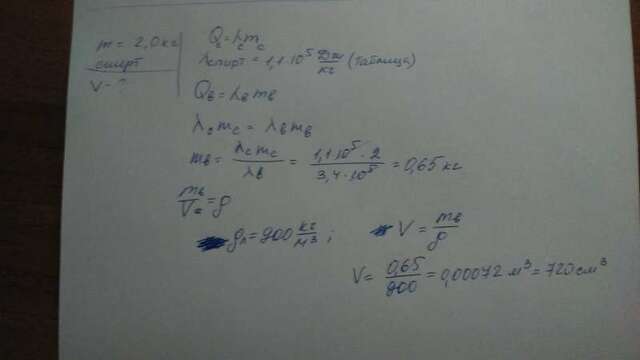 m = 2,0 кг
спирт
V - ?
Qc = λc mc
λспирт = 1,1·10⁵ Дж/кг (таблица)
Qв = λв mв
λc mc = λв mв
mв = λc mc / λв = 1,1·10⁵·2 / 3,4·10⁵ = 0,65 кг
mв / Vв = ρ
ρл = 900 кг/м³ ; V = mв / ρ
V = 0,65 / 900 = 0,00072 м³ = 720 см³